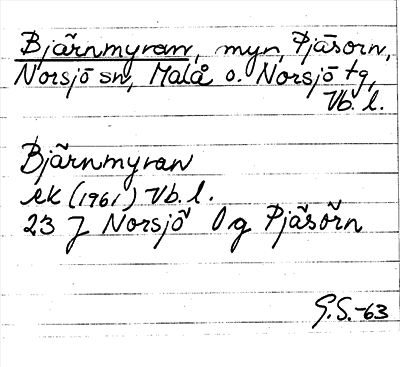 Bjärnmyran, myr, Pjäsörn,
Norsjö sn, Malå o. Norsjö tg,
Vb. l.
Bjärnmyran
ek (1961) Vb. l.
23 J Norsjö 0 g Pjäsörn
G.S.-63